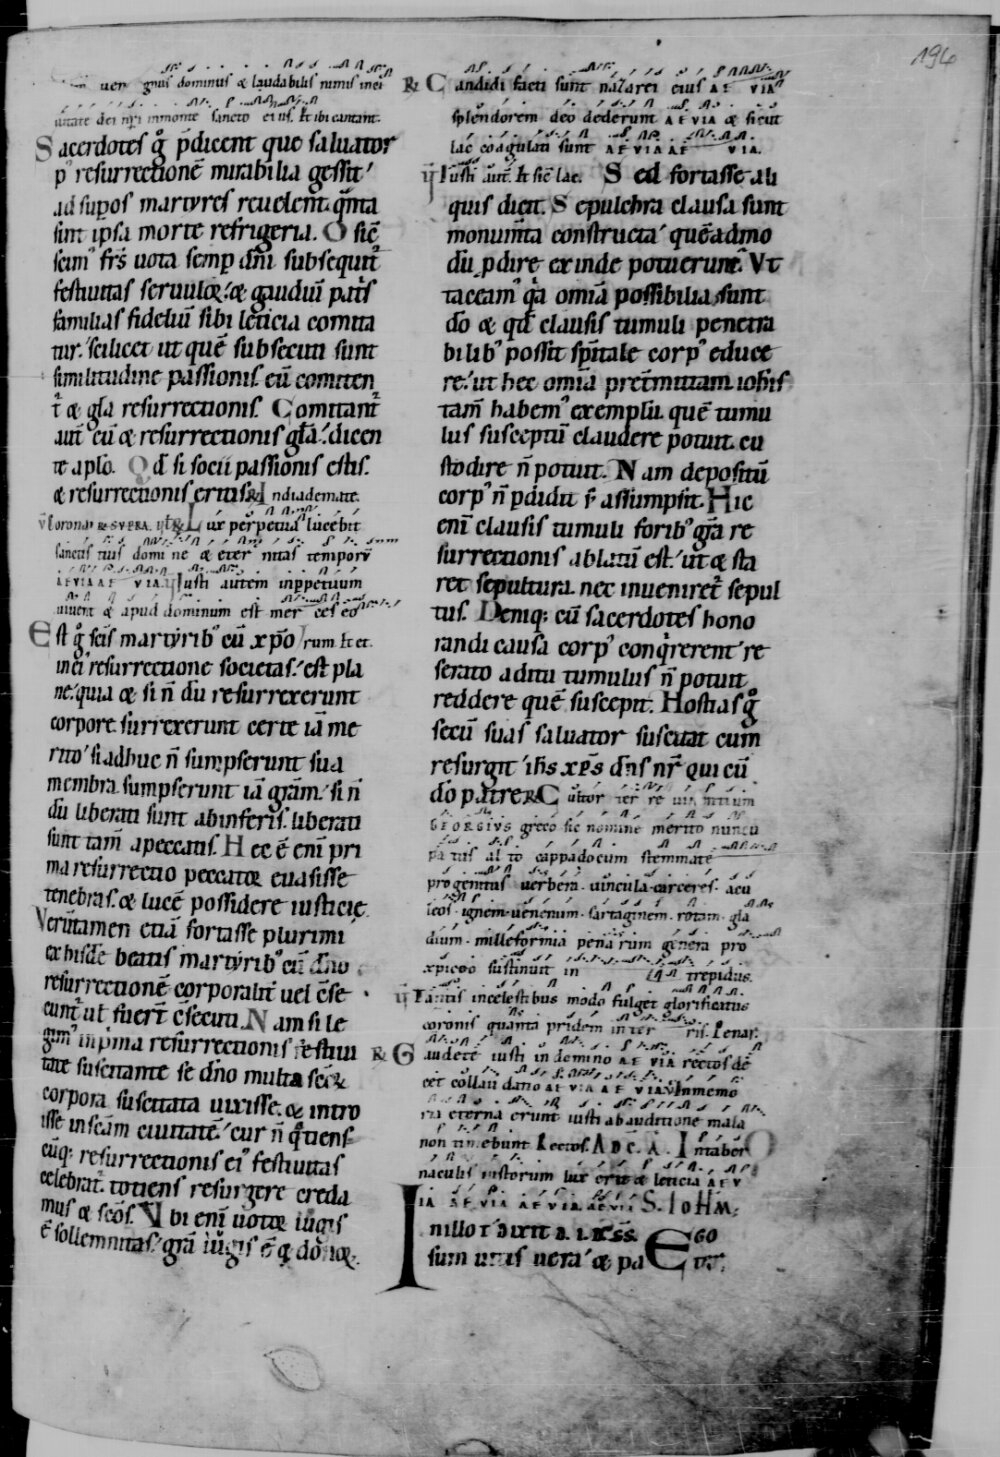 194
uen gnus dominus & laudabilis nimis inci
uitate dei nr̄i inmonte sancto eius. Et ibi cantant.
Sacerdotes g̊ p̄dicent que saluator
p᷒ resurrectionē mirabilia gessit᷒
ad sup̱os martyres reuelent. q̄nta
sint ipsa morte refrigeria. O sic̄
scim᷒ fr̄s uota semp̱ dn̄i subsequit᷑
festiuitas seruuloꝝ. & gaudiū pat̄s
familias fideliū sibi leticia comita
tur. scilicet ut quē subsecuti sunt
similitudine passionis. eū comiten
t᷑ & gl̄a resurrectionis. Comitant᷑
aut̄ eū & resurrectionis gl̄a. dicen
te ap̄lo. Qd̄ si socii passionis estis.
& resurrectionis eritis. ℞ In diademate.
V̄ Corona. & SVPRA. ℞ Lux perpetua lucebit
sanctis tuis domine & eternitas temporū
AEVIA AE VIA. V̄ Iusti autem inp̱petuum
uiuent & apud dominum est merces eo
Est g̊ sc̄is martyrib᷒ cū xp̄o rum. Et et.
inei᷒ resurrectione societas. est pla
ne. quia & si n̄ dū resurrexerunt
corpore surrexerunt certe iā me
rito. si adhuc n̄ sumpserunt sua
membra. sumpserunt iā gr̄am. si n̄
dū liberati sunt abinferis. liberati
sunt tam̄ apeccatis. Hec ē eni̅ pri
ma resurrectio peccatoꝝ euasisse
tenebras. & lucē possidere iusticię.
Verūtamen etiā fortasse plurimi
exhisdē beatis martyrib᷒ cū dn̄o
resurrectionē corporalit̄ uel c̄se
cunt᷑ ul̄ fuer̄t c̄secuti. Nam si le
gim᷒ inip̄ina resurrectionis festiui
tate suscitante se dn̄o multa sc̄oꝝ
corpora suscitata uixisse. & intro
isse insc̄am ciuitatē. cur n̄ q̊tiens
cūq; resurrectionis ei᷒ festiuitas
celebrat᷑. totiens resurgere creda
mus & sc̄os. Vbi eni̅ uotoꝝ iugis
ē sollemnitas. gr̄a iugis ē & donoꝝ.
℞ Candidi facti sunt nazarei eius AE VIA
splendorem deo dederunt AEVIA & sicut
lac coagulati sunt AEVIA AE VIA.
V̄ Iusti aut̄. Et sic̄ lac. Sed fortasse ali
quis dicit. Sepulchra clausa sunt
monum̄ta constructa. quēadmo
dū p̱dire exinde potuerunt. Vt
taceam᷒ q̇a omīa possibilia sunt
dō & qd̄ clausis tumuli penetra
bilib᷒ possit sp̄itale corp᷒ educe
re. ut hec omīa pret̄mittam. ioh̄is
tam̄ habem᷒ exemplū. quē tumu
lus susceptū claudere potuit. cu
stodire n̄ potuit. Nam depositū
corp᷒ n̄ p̱didit s̄ assumpsit. Hic
eni̅ clausis tumuli forib᷒ gr̄a re
surrectionis ablatū est. ut & sta
ret sepultura. nec inueniret᷑ sepul
tus. Deniq; cū sacerdotes hono
randi causa corp᷒ conq̊rerent. re
serato aditu tumulus n̄ potuit
reddere quē suscepit. Hostias g̊
secū suas saluator suscitat cum
resurgit ih̄s xp̄s dn̄s nr̄. qui cū
dō patre. ℞ C
GEORGIVS greco sic nomine merito nuncu
patus alto cappadocum stemmate
progenitus uerbera. uincula. carceres. acu
leos. ignem. uenenum. sartaginem. rotam. gla
dium. milleformia penarum genera pro
xpicto sustinuit in trepidus.
V̄ Tantis incelestibus modo fulget glorificatus
coronis quanta pridem interris. Penar.
℞ Gaudete iusti in domino AE VIA rectos dē
cet collaudatio AEVIA AE VIA. V̄ Inmemo
ria eterna erunt iusti abauditione mala
non timebunt. Rectos. AD C. A. Intaber
naculis iustorum lux orta & leticia AEV
IA AEVIA AEVIA AEVIA S. IOHM;
Inillo t᷑ dixit d. i. d. ss. EGO
sum uitis uera. & pa EVV;